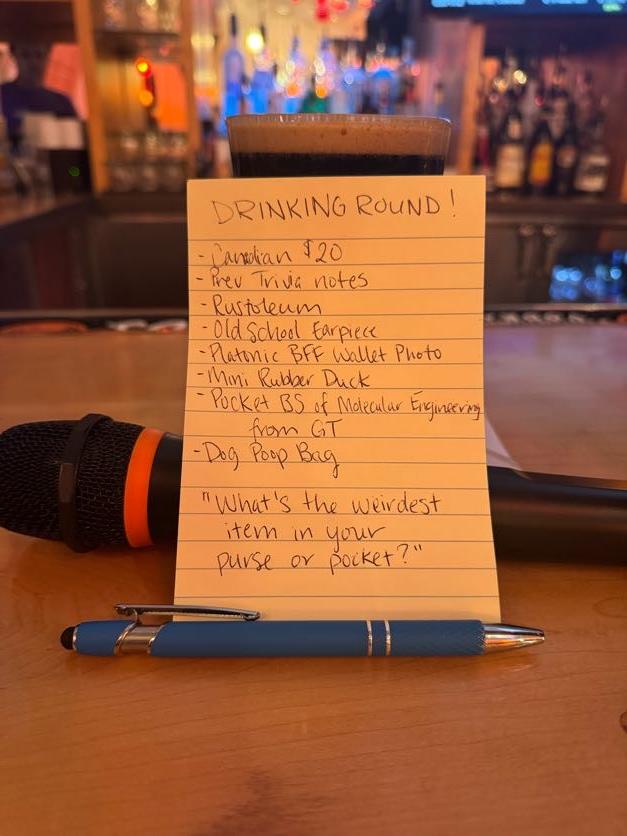 DRINKING ROUND!
- Canadian $20
- Prev Trivia notes
- Rustoleum
- Old School Earpiece
- Platonic BFF Wallet Photo
- Mini Rubber Duck
- Pocket BS of Molecular Engineering
from GT
- Dog Poop Bag
"What's the weirdest
item in your
purse or pocket?"